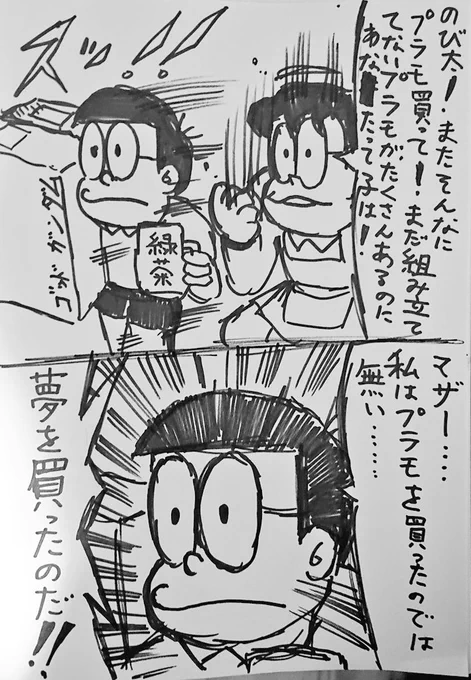 のび太！またそんなに
プラモ買って！まだ組み立て
てないプラモがたくさんあるのに
あなたって子は！
ズッ…!!
緑
茶
ゴッドガンダム
マザー……
私はプラモを買ったのでは
無い……
夢を買ったのだ!!